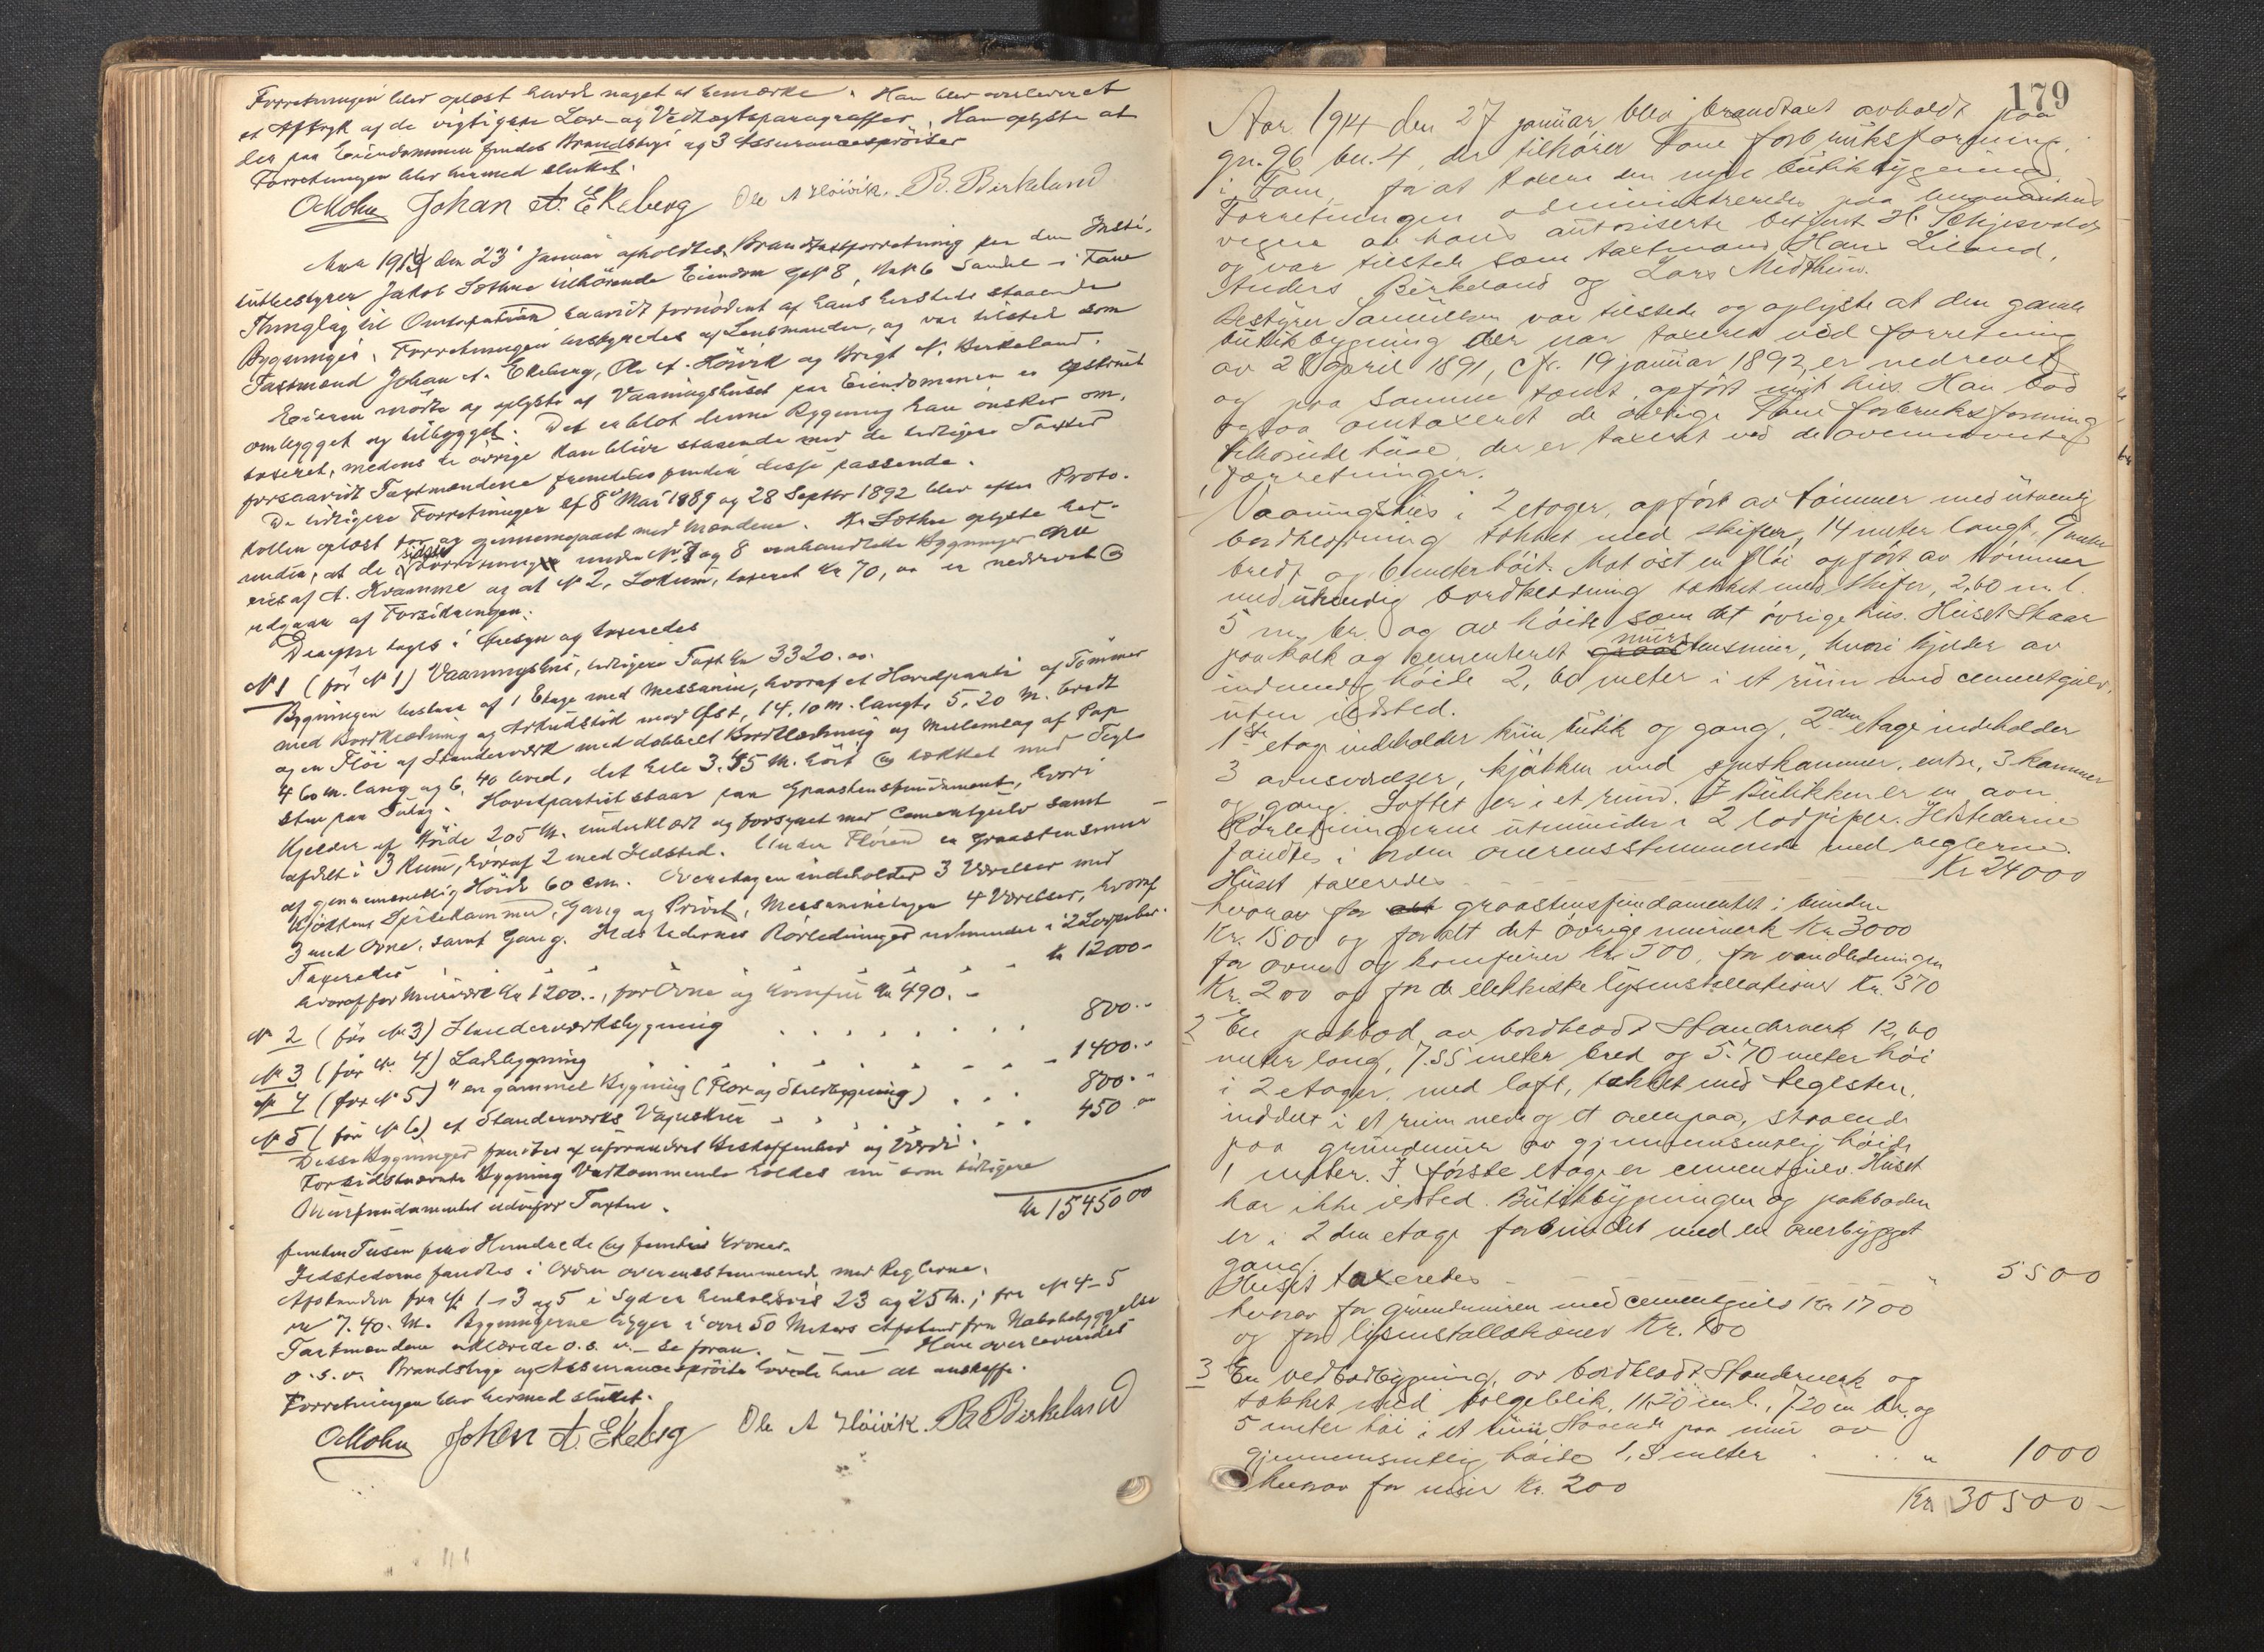 Forretningen blev oplæst havde noget at bemærke. Han blev overleveret
et Aftryk af de vigtigste Lov- og Vedtægtsparagraffer. Han oplyste at
der paa Eiendommen findes Brandstige og 3 Assurancesprøiter
Forretningen blev hermed sluttet.
OMohn Johan A. Ekeberg Ole A Høivik. B. Birkeland
Aar 1914 den 23 Januar afholdtes Brandtaxtforretning paa den Insti-
tutbestyrer Jakob Sæthre tilhørende Eiendom GNo 8, BNo 6 Sandal i Fane
Thinglag til Omtaxation saavidt fornødent af hans hersteds staaende
Bygninger. Forretningen bestyredes af Lensmanden, og var tilstede som
Taxtmænd Johan A. Ekeberg, Ole A. Høivik og Brigt N. Birkeland.
Eieren mødte og oplyste at Vaaningshuset paa Eiendommen er
ombygget og tilbygget. Det er blot denne Bygning han ønsker om-
taxeret, medens de øvrige kan blive staaende med de tidligere Taxter
forsaavidt Taxtmændene fremdeles finder disse passende.
De tidligere Forretninger af 8de Mai 1889 og 28 Septbr 1892 blev efter Proto-
kollen oplæst for og gjennemgaaet med Mændene. Hr Sæthre oplyste her-
under, at de sidste under No 7 og 8 omhandlede Bygninger nu
eies af A. Kvamme og at No 2, Lokum, taxeret Kr 70, oo er nedrevet og
udgaar af Forsikringen.
Derefter toges i Øiesyn og taxeredes
No 1 (før No 1) Vaaningshus, tidligere Taxt Kr 3320.oo.
Bygningen bestaar af 1 Etage med Messanin, hvoraf et Hovedparti af Tømmer
med Bordklædning og Arkudstik mod Øst, 14,10 m. langt, 5,20 m. bredt
og en Fløi af Standerværk med dobbelt Bordklædning og Mellemlag af Pap
4,60 m. lang og 6,40 bred, det hele 3.55 m. høit og tækket med Tegl-
sten paa Sutag. Hovedpartiet staar paa Graastensfundament, hvori
Kjelder af Høide 2,05 M. underklædt og forsynet med Cementgulv samt
afdelt i 3 Rum, hvoraf 2 med Ildsted. Under Fløien er Graastensmur
af gjennemsnitlig Høide 60 cm. Overetagen indeholder 3 Værelser med
Kjøkken, Spisekammer, Gang og Privet, Messaninetagen 4 Værelser, hvoraf
3 med Ovne, samt Gang. Ildstedernes Rørledninger udmunder i 2 Lovpiber.
Taxeredes Kr 12000-
hvoraf for Murværk Kr 1200.-, for Ovne og Komfur Kr 490.-
No 2 (før No 3) Standerværksbygning 800.-
No 3 (før No 4) Ladebygning 1400.-
No 4 (før No 5) " en gammel Bygning (Flor og Staldbygning) 800.-
No 5 (før No 6) et Standerværks Vognskur 450 oo
Disse Bygninger fandtes af uforandret Beskaffenhed og Værdi.
Forsidstnævnte Bygning Vedkommende holdes nu som tidligere
Murfundamentet udenfor Taxten. Kr 15450 00
femten Tusen fire Hundrede og femti Kroner.
Ildstederne fandtes i Orden overensstemmende med Reglerne.
Afstanden fra No 1-3 og 5 i Syd er henholdsvis 23 og 25 M.; fra No 4-5
er 7.40. M. Bygningerne ligger i over 50 Meters Afstand fra Nabobebyggelse
Taxtmændene erklærede o.s.v. - se foran. - Han overleveredes
o.s.v. Brandstige og Assurancesprøite lovede han at anskaffe.
Forretningen blev hermed sluttet.
OMohn Johan A. Ekeberg Ole A Høivik. B. Birkeland
179
Aar 1914 den 27 januar blev brandtaxt avholdt paa
gn. 96 bn. 4, der tilhører Fane forbruksforening,
i Fane, for at taxere den nye butikbygning.
Forretningen administreredes paa lensmandens
vegne av hans autoriserte betjent H. Schjesvold
og var tilstede som taxtmænd Hans Liland,
Anders Birkeland og Lars Midthun.
Bestyrer Samuelsen var tilstede og oplyste at den gamle
butikbygning der var taxeret ved forretning
av 28 april 1891, cfr. 19 januar 1892, er nedrevet
og paa samme tomt opført nyt hus. Han bad
ogsaa omtaxeret de øvrige Fane forbruksforening
tilhørende huse, der er taxeret ved de ovennævnte
forretninger.
1 Vaaningshus i 2 etager, opført av tømmer med utvendig
bordklædning tækket med skifer, 14 meter langt, 9 meter
bredt og 6 meter høit. Mot øst en fløi opført av tømmer
med utvendig bordklædning tækket med skifer, 2,60 m. l.
5 m. br. og av høide som det øvrige hus. Huset staar
paa kalk og cementeret murstensmur, hvori kjelder av
indvendig høide 2,60 meter i et rum med cementgulv,
uten ildsted.
1ste etage indeholder kun butik og gang, 2den etage indeholder
3 ovnsværelser, kjøkken med spiskammer, entre, 3 kammer
og gang. Loftet er i et rum. I Butikken er en ovn.
Rørledningerne utmunder i 2 lodpiper. Ildstederne
fandtes i orden overensstemmende med reglerne.
Huset taxeredes Kr 24000
hvorav for graastensfundamentet i
Kr. 1500 og for alt det øvrige murverk Kr. 3000
for ovne og komfurer Kr. 500, for vandledningen
Kr. 200 og for de elektriske lysinstallationer Kr. 370
2 En pakbod av bordklædt Standerverk 12,60
meter lang, 7.55 meter bred og 5.70 meter høi
i 2 etager, med loft, tækket med teglsten,
inddelt i et rum nede og et ovenpaa, staaende
paa grundmur av gjennemsnitlig høide
1 meter. I første etage er cementgulv. Huset
har ikke ildsted. Butikbygningen og pakboden
er i 2den etage forbundet med en overbygget
gang.
Huset taxeredes " 5500
hvorav for grundmuren med cementgulv Kr 1700
og for lysinstallationer Kr. 100
3 En vedbodbygning, av bordklædt Standerverk og
tækket med bølgeblik, 11,20 m. l., 7.20 m br. og
5 meter høi i et rum Staaende paa mur av
gjennemsnitlig høide 1,5 meter " 1000
hvorav for mur Kr. 200
Kr 30500-